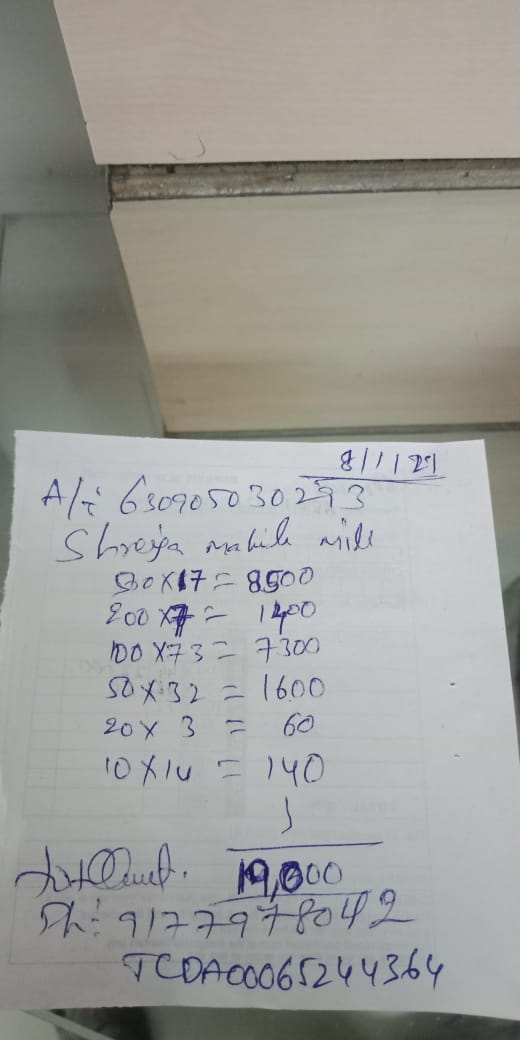 8/1/21
A/c: 630905030293
Shreya mobile
500X17 = 8500
200 X7 = 1400
100 X73 = 7300
50 X 32 = 1600
20 X 3 = 60
10 X 14 = 140
19,000
Ph: 9177978042
TCDA00065244364